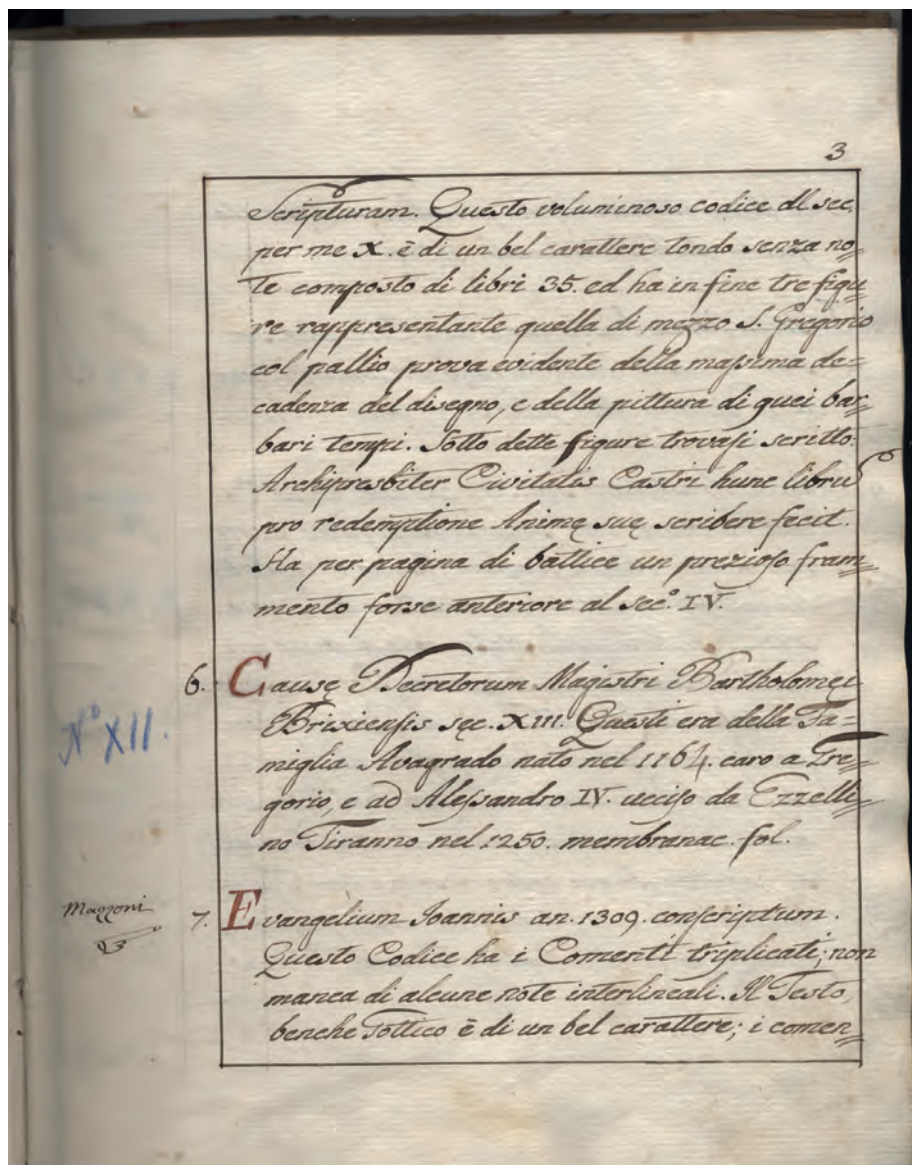 3
Scripturam. Questo voluminoso codice dl sec.
per me X. è di un bel carattere tondo senza no=
te composto di libri 35. ed ha in fine tre figu=
re rappresentante quella di mezzo S. Gregorio
col pallio prova evidente della massima de=
cadenza del disegno, e della pittura di quei bar=
bari tempi. Sotto dette figure trovasi scritto:
Archipresbiter Civitatis Castri hunc librũ
pro redemptione Animę suę scribere fecit.
Ha per pagina di battice un prezioso fram=
mento forse anteriore al sec.º IV.
6. Causę Decretorum Magistri Bartholomęi
Nº XII.
Brixiensis sęc. XIII. Questi era della Fa=
miglia Avagrado nato nel 1164. caro a Gre=
gorio, e ad Alessandro IV. ucciso da Ezzelli=
no Tiranno nel 1250. membranac. fol.
Mazzoni
7. Evangèlium Ioannis an. 1309. conscriptum.
Questo Codice ha i Comenti triplicati; non
manca di alcune note interlineali. Il Testo,
benche Gottico è di un bel carattere; i comen=